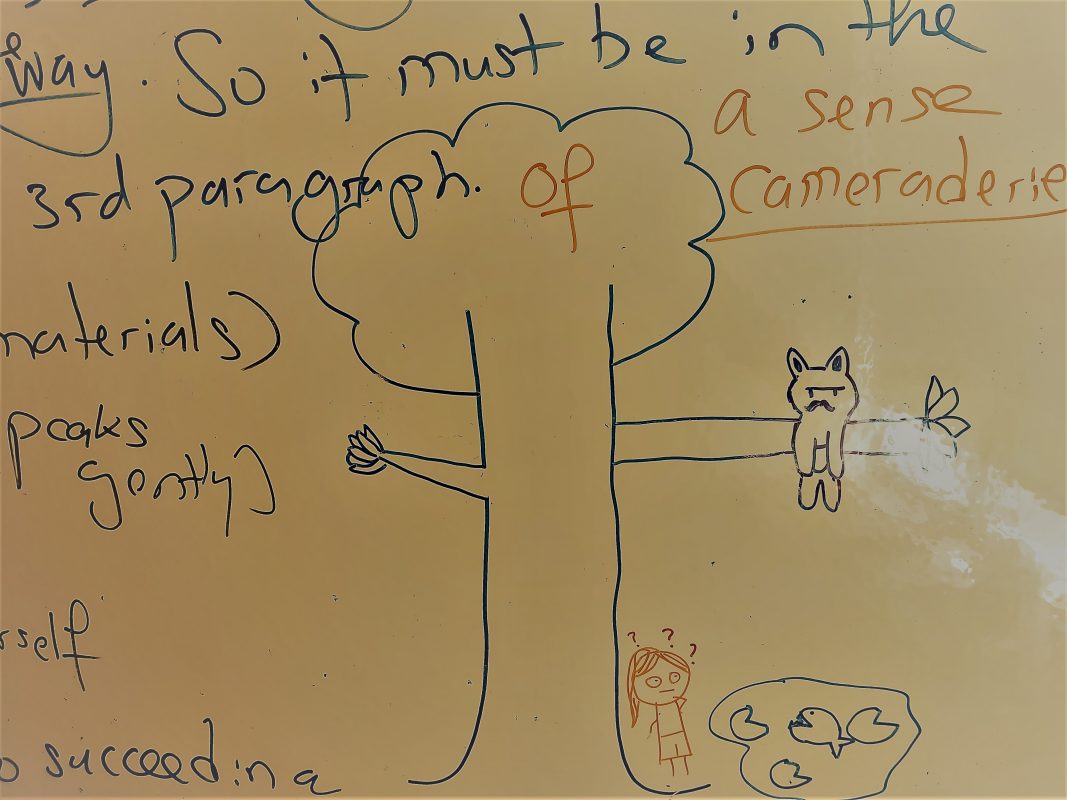 way. So it must be in the
3rd paragraph.
of
a sense
cameraderie
materials)
peaks
gently)
rself
o succeed in a
? ? ?